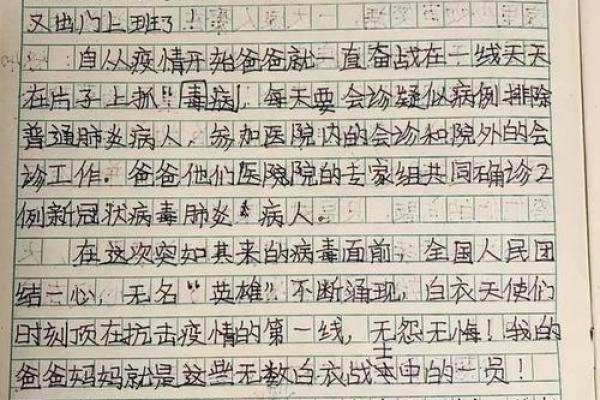 又出门上班了！
自从疫情开始爸爸就一直奋战在一线天天
在片子上抓“毒病”，每天要会诊疑似病例排除
普通肺炎病人，参加医院内的会诊和院外的会
诊工作。爸爸他们医院院的专家组共同确诊2
例新冠状病毒肺炎病人。
在这次突如其来的病毒面前，全国人民团
结一心，无名“英雄”不断涌现，白衣天使们
时刻顶在抗击疫情的第一线，无怨无悔！我的
爸爸妈妈就是这些无数白衣战士中的一员！